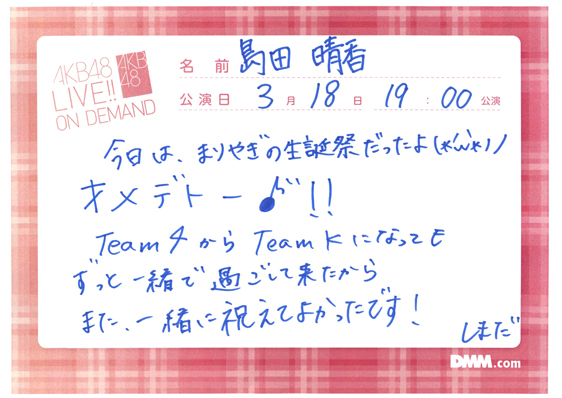 AKB48
LIVE!!
ON DEMAND
AKB
48
名前 島田 晴香
公演日 3月18日 19:00公演
今日は、まりやぎの生誕祭だったよ(*'ω'*)ノ
オメデトー♪!!
Team 4 から Team K になっても
ずっと一緒で過ごして来たから
また、一緒に祝えてよかったです!
しまだ
DMM.com